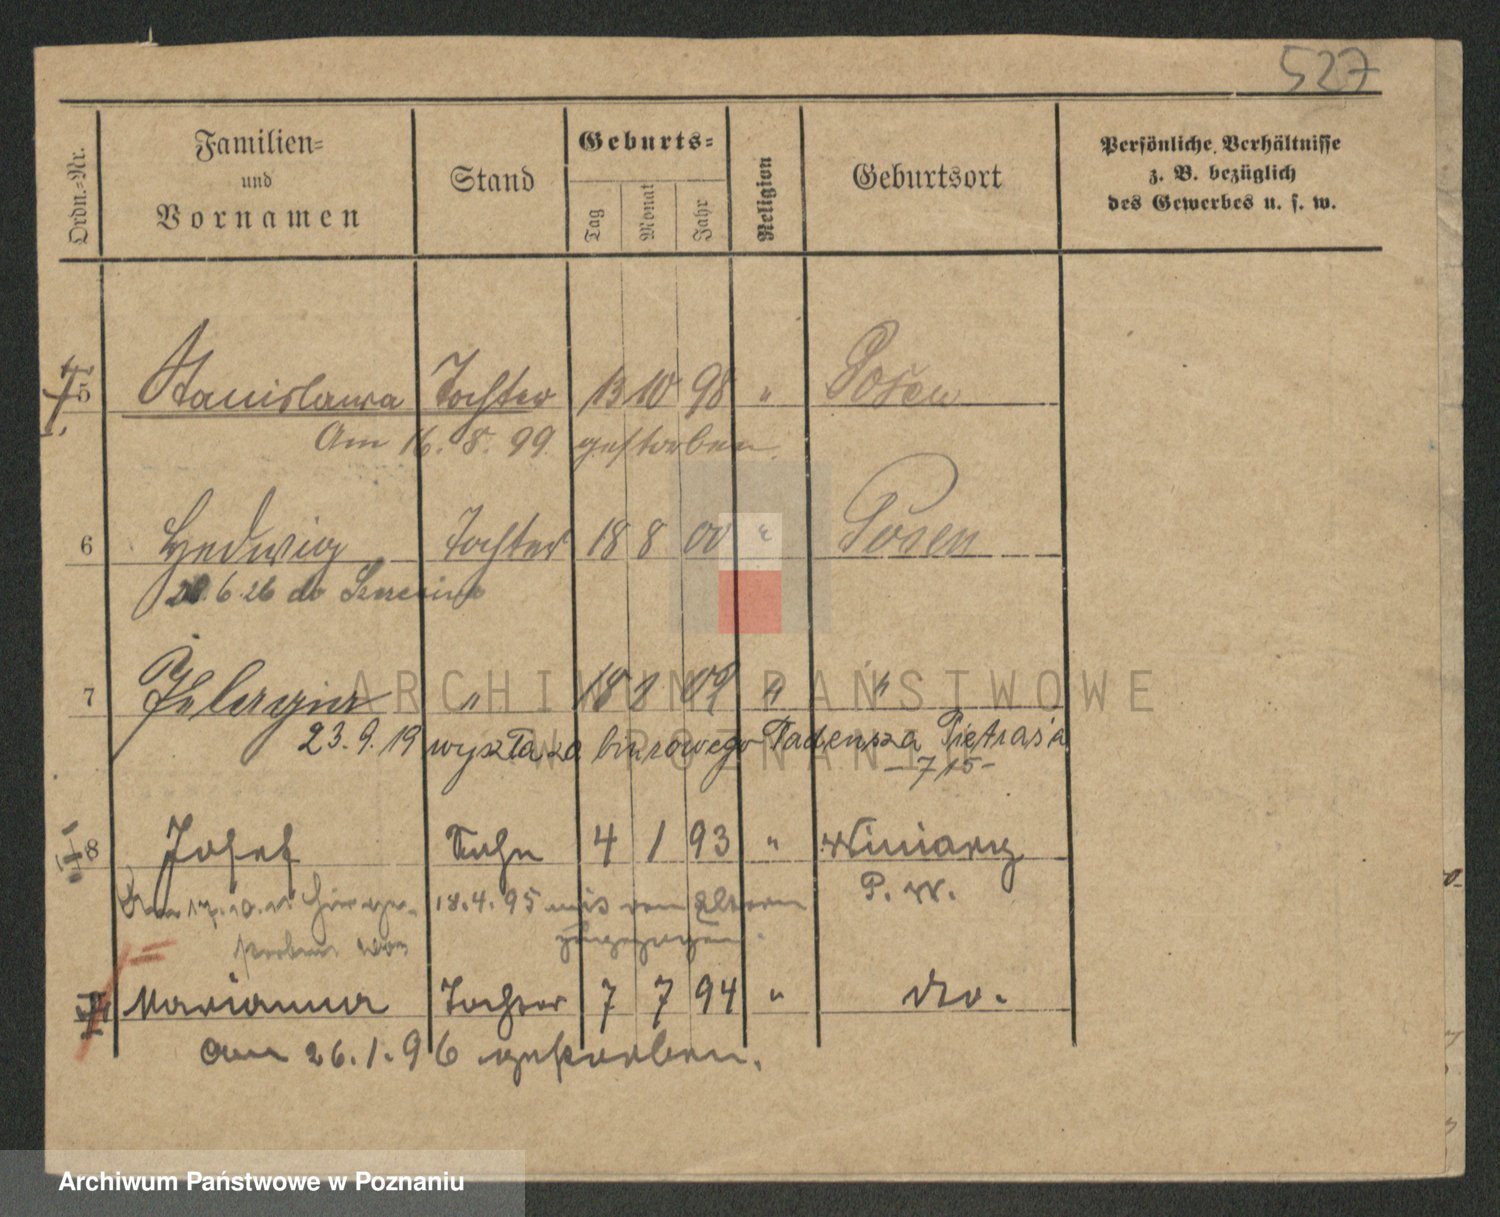 527
Ordn.=Nr.
Familien=
und
Vornamen
Stand
Geburts=
Tag
Monat
Jahr
Religion
Geburtsort
Persönliche Verhältnisse
z. B. bezüglich
des Gewerbes u. s. w.
5 Stanislawa Tochter 13 10 98 " Posen
Am 16. 8. 99. gestorben.
6 Hedwig Tochter 18 8 00 " Posen
28.6.26 do
7 Pelagia " 18 09 " "
23.9.19 wyszła za biurowego Tadeusza Pietrasia
— 715 —
8 Josef Sohn 4 1 93 " Winiary
18.4.95 mit den Eltern P. W.
zugezogen.
Marianna Tochter 7 7 94 " do.
Am 26.1.96 gestorben.
ARCHIWUM PAŃSTWOWE
W POZNANIU
Archiwum Państwowe w Poznaniu